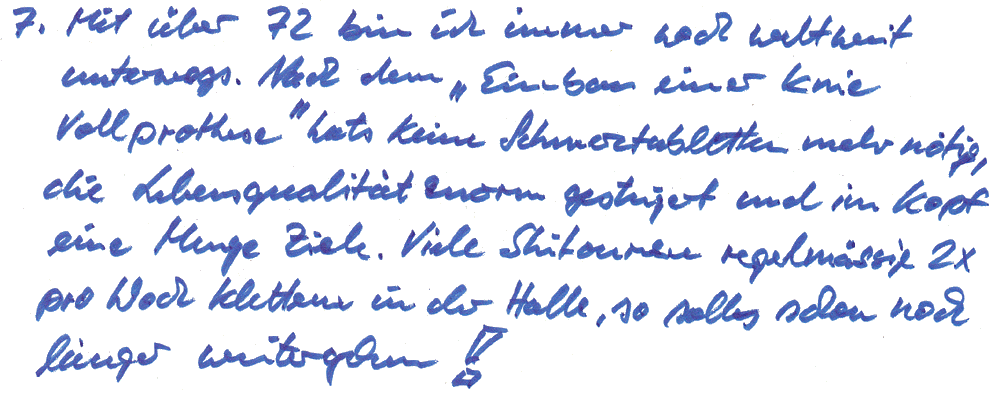 7. Mit über 72 bin ich immer noch weltweit
unterwegs. Nach dem „Einbau einer Knie
Vollprothese" hats keine Schmerztabletten mehr nötig,
die Lebensqualität enorm gesteigert und im Kopf
eine Menge Ziele. Viele Skitouren regelmässig 2x
pro Woche klettern in der Halle, so solles schon noch
länger weitergehen!